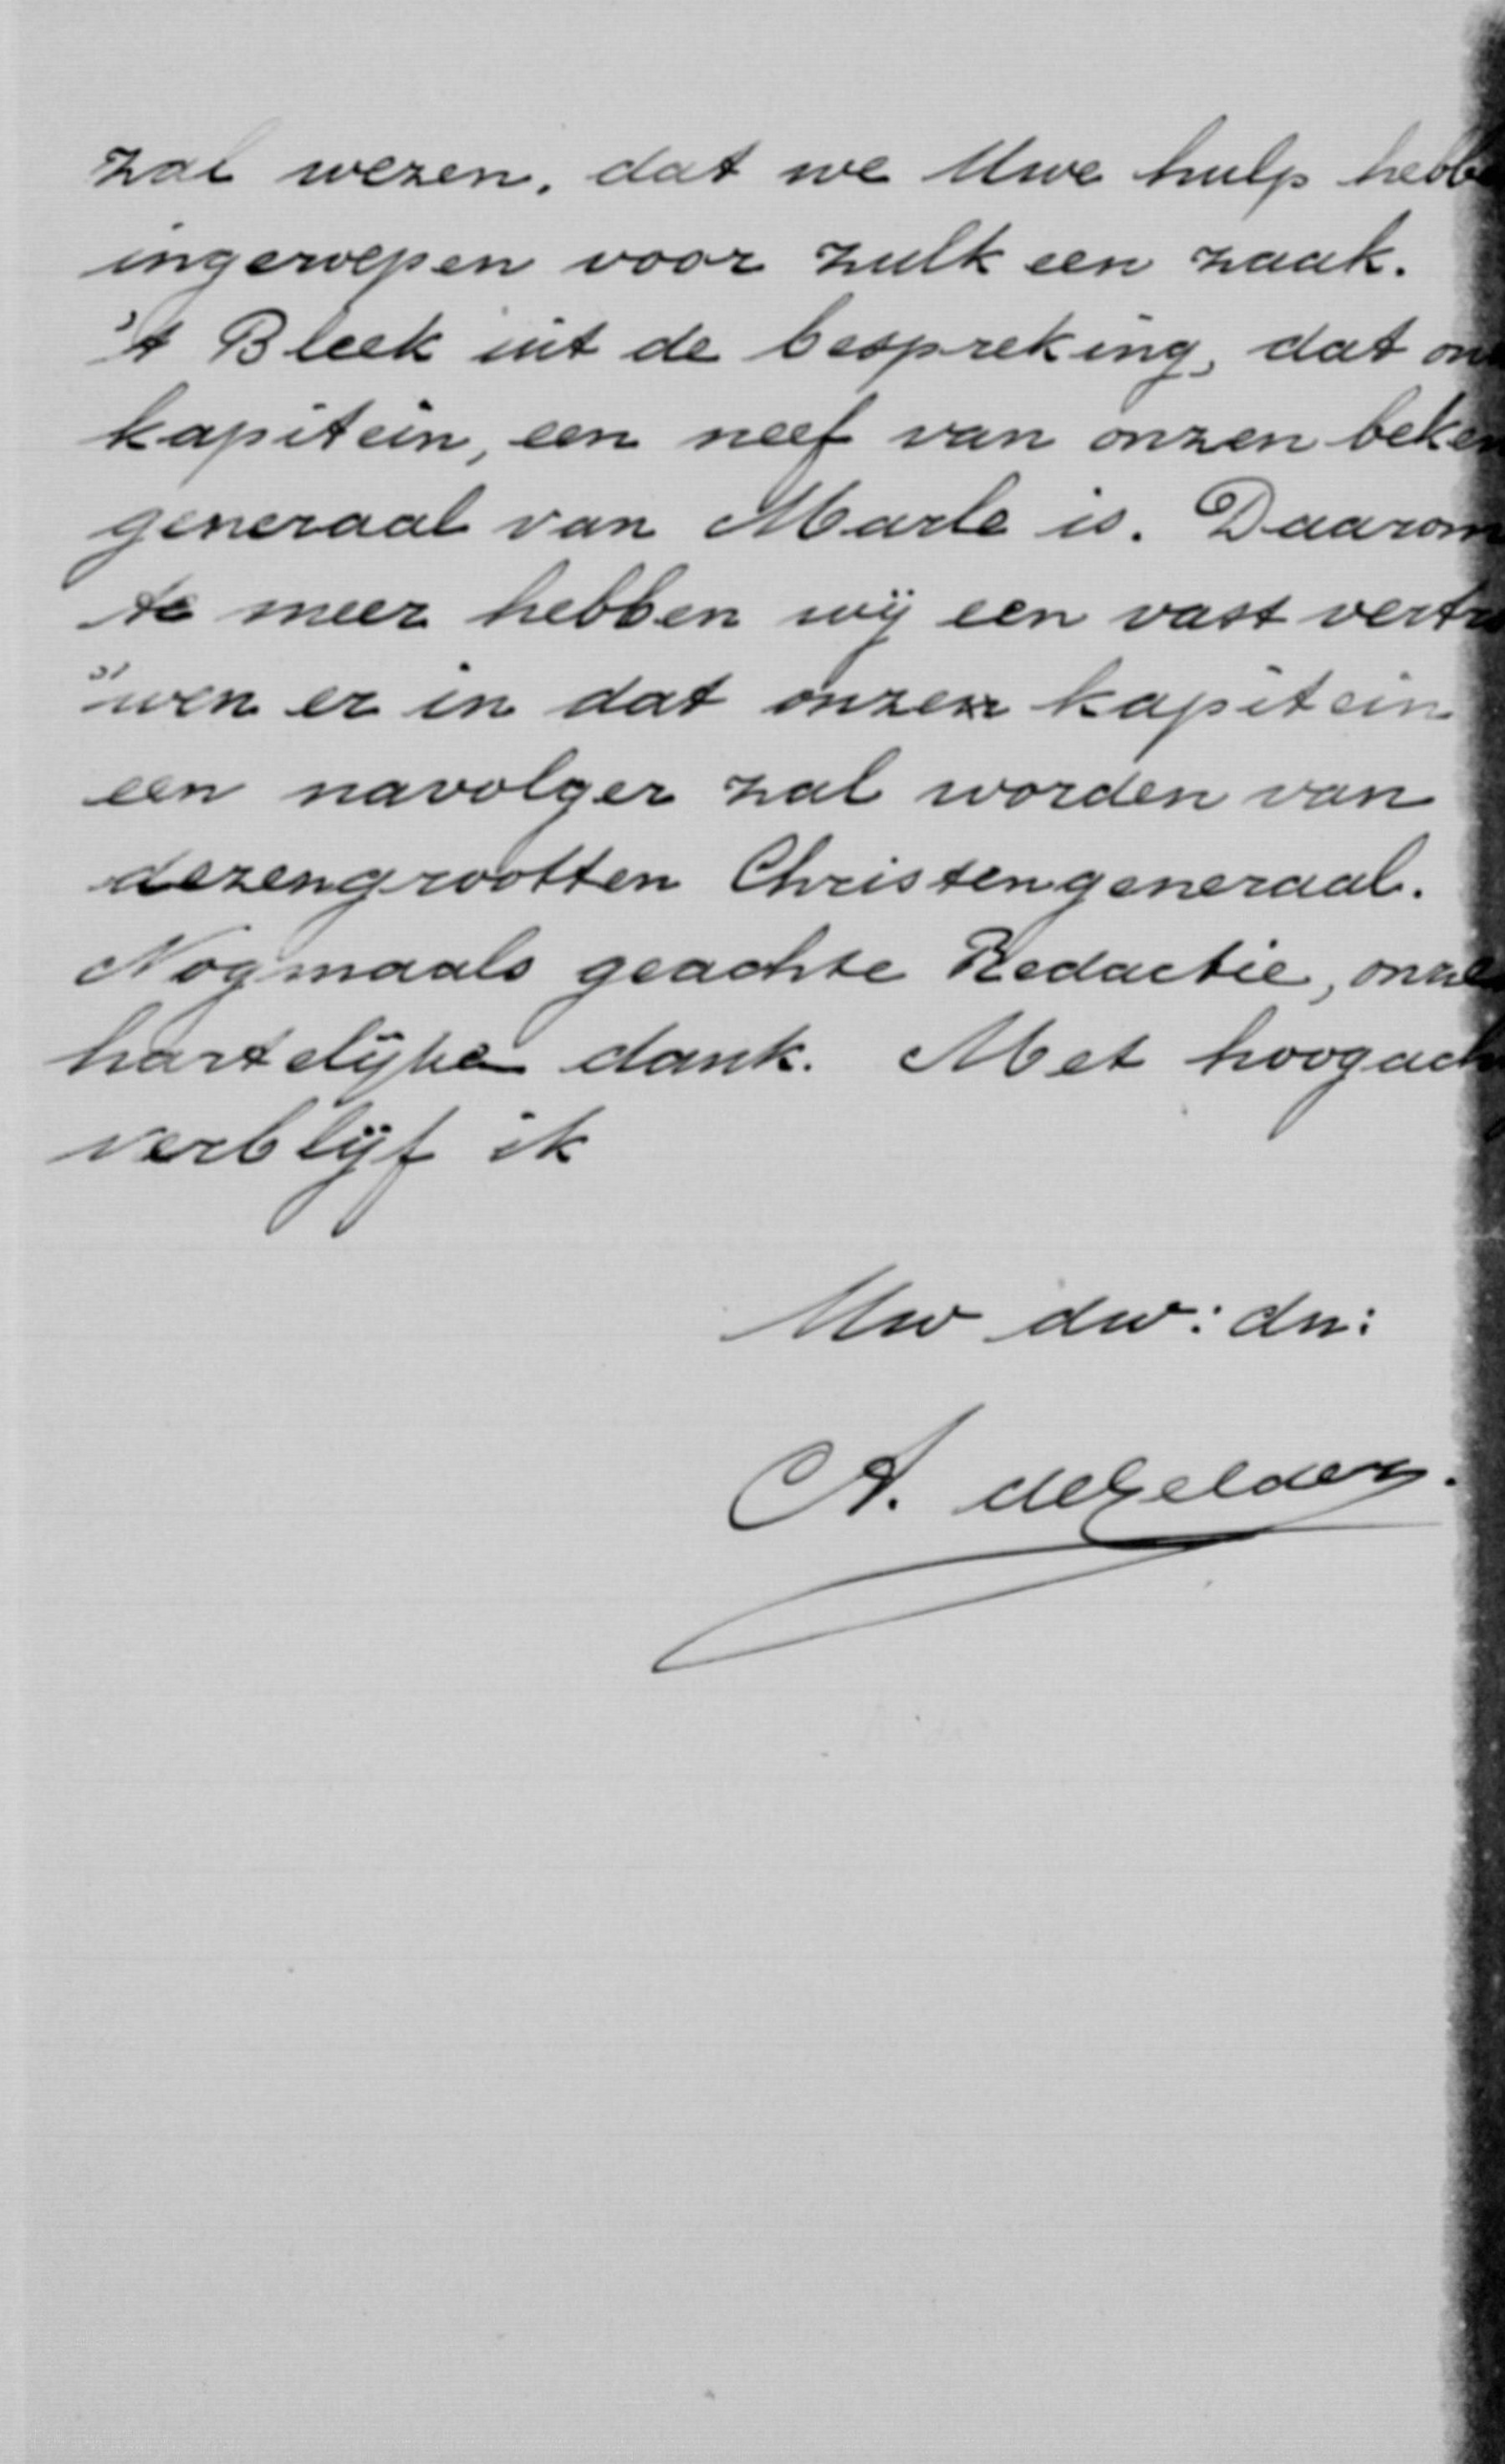 zal wezen, dat we Uwe hulp hebbe
ingeroepen voor zulk een zaak.
't Bleek uit de bespreking, dat on
kapitein, een neef van onzen beken
generaal van Marle is. Daarom
te meer hebben wij een vast vertr
"wen er in dat onzen kapitein
een navolger zal worden van
dezengrootten Christengeneraal.
Nogmaals geachte Redactie, onze
hartelijke dank. Met hoogach
verblijf ik
Uw dw: dn:
A. de Gelder.